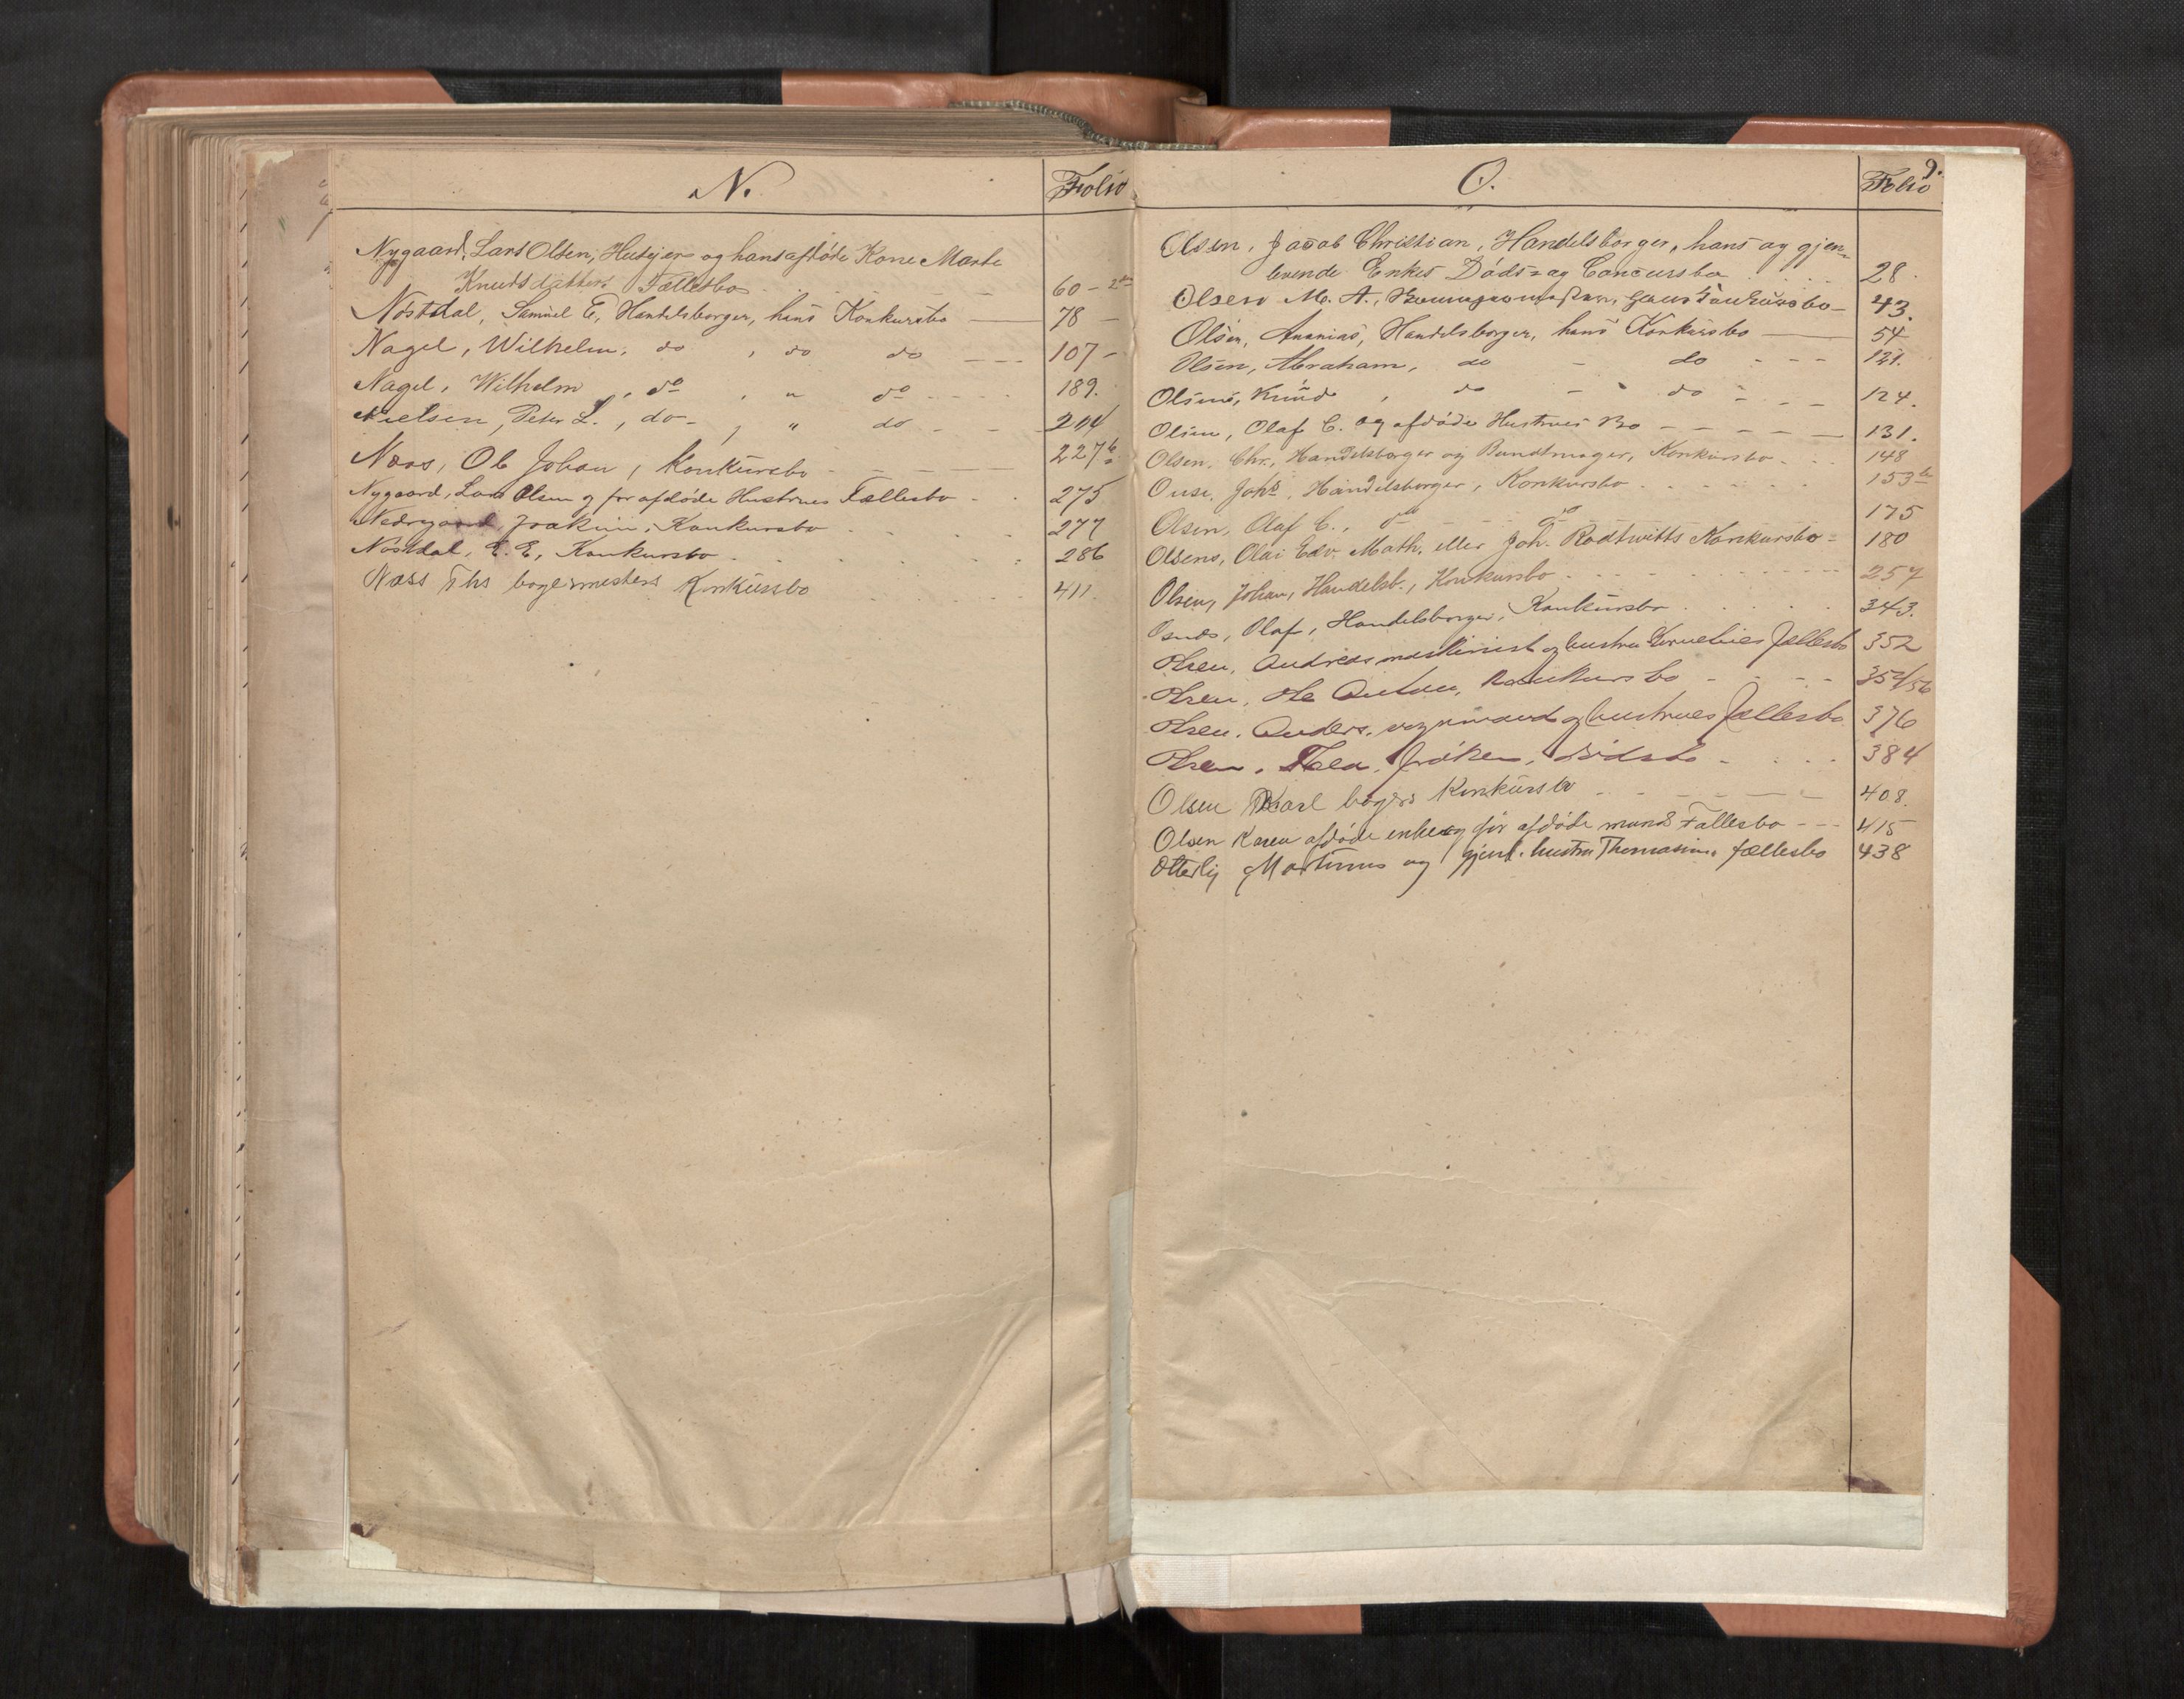 N. Folio
Nygaard, Lars Olsen, Huseier og hans afdøde Kone Marte
Knudsdatters Fællesbo 60 - 2den
Nøstdal, Samuel E, Handelsborger, hans Konkursbo 78
Nagel, Wilhelm, do , do do 107
Nagel, Wilhelm, do , " do 189.
Nielsen, Peter L., do , " do 204
Næss, Ole Johan, Konkursbo 227b
Nygaard, Lars Olsen og før afdøde Hustrues Fællesbo 275
Nedregaard, Joakim, Konkursbo 277
Nøstdal, E. E, Konkursbo 286
Næss Ths bagermesters Konkursbo 411.
9.
O. Folio
Olsen, Jacob Christian, Handelsborger, hans og gjen-
levende Enkes Døds- og Concursbo 28.
Olsen M. A., hans Konkursbo 43.
Olsen, Ananias, Handelsborger, hans Konkursbo 54
Olsen, Abraham, do - do 121.
Olsens, Knud , do - do 124.
Olsen, Olaf C. og afdøde Hustrues Bo 131.
Olsen, Chr., Handelsborger og Bundtmager, Konkursbo 148
Ouse, Johs, Handelsborger, Konkursbo 153b
Olsen, Olaf C., do do 175
Olsens, Olai Edv. Math. eller Joh. Rødtwitts Konkursbo 180
Olsen, Johan, Handelsb., Konkursbo 257
Osnes, Olaf, Handelsborger, Konkursbo 343.
Olsen, Andreas maskinist og hustru Kornelies Fællesbo 352
Olsen, Ole Anton, Konkursbo 354/56
Olsen, Anders, vognmand og hustrues Fællesbo 376
Olsen, Thea, frøken, Dødsbo 384
Olsen Karl bagers Konkursbo 408.
Olsen Karen afdøde enke og før afdøde mands Fællesbo 415
Otterlej Martinus og gjenl. hustru Thomasines fællesbo 438